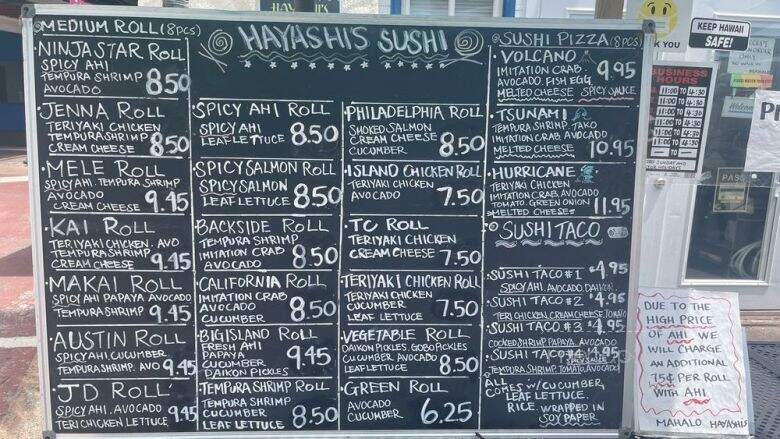 MEDIUM ROLL (8pcs)
NINJASTAR ROLL
SPICY AHI
TEMPURA SHRIMP
AVOCADO 8.50
JENNA ROLL
TERIYAKI CHICKEN
TEMPURA SHRIMP
CREAM CHEESE 8.50
MELE ROLL
SPICY AHI. TEMPURA SHRIMP
AVOCADO
CREAM CHEESE 9.45
KAI ROLL
TERIYAKI CHICKEN. AVO
TEMPURA SHRIMP
CREAM CHEESE 9.45
MAKAI ROLL
SPICY AHI PAPAYA AVOCADO
TEMPURA SHRIMP 9.45
AUSTIN ROLL
SPICY AHI. CUCUMBER
TEMPURA SHRIMP. AVO 9.45
JD ROLL
SPICY AHI. AVOCADO
TERI CHICKEN LETTUCE 9.45
HAYASHIS SUSHI
SPICY AHI ROLL
SPICY AHI
LEAF LETTUCE 8.50
SPICY SALMON ROLL
SPICY SALMON
LEAF LETTUCE 8.50
BACKSIDE ROLL
TEMPURA SHRIMP
IMITATION CRAB
AVOCADO 8.50
CALIFORNIA ROLL
IMITATION CRAB
AVOCADO
CUCUMBER 8.50
BIG ISLAND ROLL
FRESH AHI
PAPAYA
CUCUMBER
DAIKON PICKLES 9.45
TEMPURA SHRIMP ROLL
TEMPURA SHRIMP
CUCUMBER
LEAF LETTUCE 8.50
PHILADELPHIA ROLL
SMOKED SALMON
CREAM CHEESE
CUCUMBER 8.50
ISLAND CHICKEN ROLL
TERIYAKI CHICKEN
AVOCADO 7.50
TC ROLL
TERIYAKI CHICKEN
CREAM CHEESE 7.50
TERIYAKI CHICKEN ROLL
TERIYAKI CHICKEN
CUCUMBER
LEAF LETTUCE 7.50
VEGETABLE ROLL
DAIKON PICKLES. GOBO PICKLES
CUCUMBER AVOCADO
LEAF LETTUCE 8.50
GREEN ROLL
AVOCADO
CUCUMBER 6.25
SUSHI PIZZA (8pcs)
VOLCANO
IMITATION CRAB
AVOCADO. FISH EGG
MELTED CHEESE SPICY SAUCE 9.95
TSUNAMI
TEMPURA SHRIMP. TAKO
IMITATION CRAB AVOCADO
MELTED CHEESE 10.95
HURRICANE
TERIYAKI CHICKEN
IMITATION CRAB. AVOCADO
TOMATO. GREEN ONION
MELTED CHEESE 11.95
SUSHI TACO
SUSHI TACO #1 $4.95
SPICY AHI. AVOCADO. DAIKON
SUSHI TACO #2 $4.95
TERI CHICKEN, CREAM CHEESE, TOMATO
SUSHI TACO #3 $4.95
COOKED SHRIMP. PAPAYA. AVOCADO
SUSHI TACO $4.95
TEMPURA SHRIMP, TOMATO, AVOCADO
ALL
COMES W/ CUCUMBER
LEAF LETTUCE.
RICE. WRAPPED IN
SOY PAPER
YOU
KEEP HAWAII
SAFE!
BUSINESS
HOURS
11:00 TO 4:30
DUE TO THE
HIGH PRICE
OF AHI. WE
WILL CHARGE
AN ADDITIONAL
75¢ PER ROLL
WITH AHI
MAHALO HAYASHIS